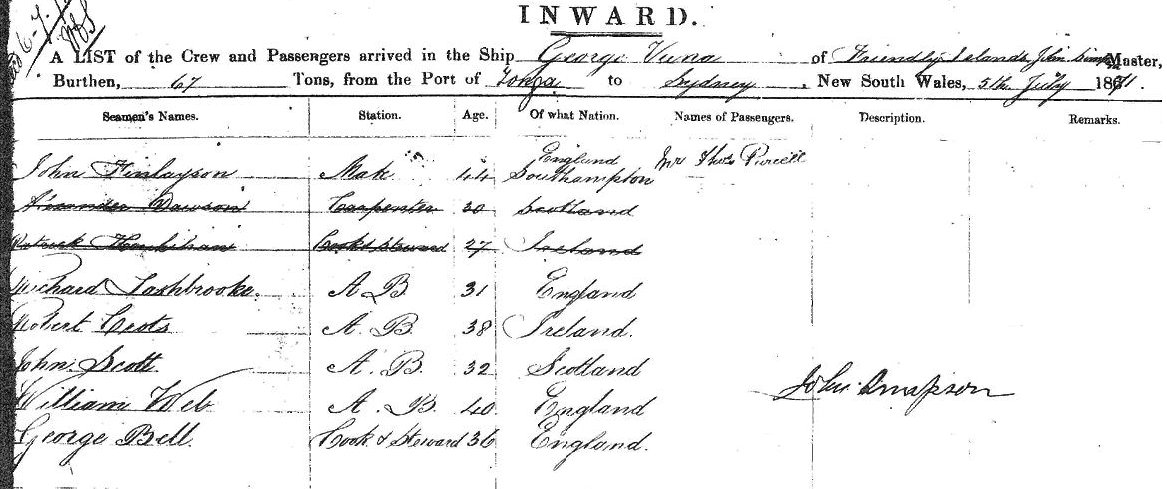 INWARD.
A LIST of the Crew and Passengers arrived in the Ship George Vuna of Friendly Islands John Master,
Burthen, 67 Tons, from the Port of Tonga to Sydney, New South Wales, 5th July 1871.
Seamen's Names. Station. Age. Of what Nation. Names of Passengers. Description. Remarks.
John Finlayson Mate 44 England Southampton Mr Thos Purcell
Alexander Dawson Carpenter 30 Scotland
Patrick Cook & Steward 27 Ireland
Richard Lashbrooke A B 31 England
Robert A. B. 38 Ireland.
John Scott A. B. 32 Scotland
William Web A. B. 40 England
John Simpson
George Bell Cook & Steward 36 England.